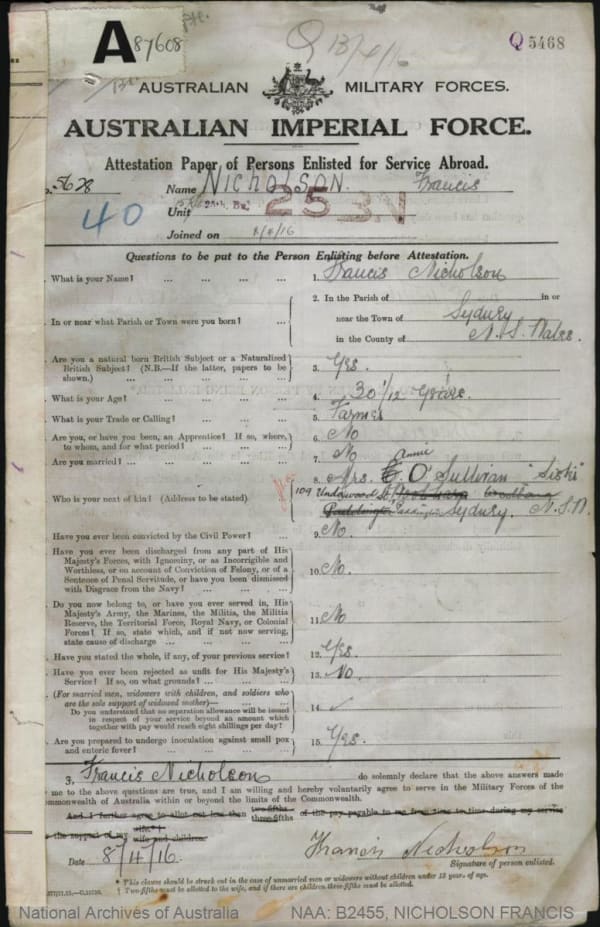 A 87608
Q 5468
AUSTRALIAN MILITARY FORCES.
AUSTRALIAN IMPERIAL FORCE.
Attestation Paper of Persons Enlisted for Service Abroad.
5628 Name NICHOLSON. Francis
40 Unit 25th Bn
Joined on 8/4/16
Questions to be put to the Person Enlisting before Attestation.
What is your Name? ... ... ... ... 1. Francis Nicholson
In or near what Parish or Town were you born? ... 2. In the Parish of in or
near the Town of Sydney
in the County of N. S. Wales.
Are you a natural born British Subject or a Naturalized
British Subject? (N.B.—If the latter, papers to be
shown.) ... ... ... ... 3. Yes.
What is your Age? ... ... ... 4. 30 1/12 Years.
What is your Trade or Calling? ... ... ... 5. Farmer
Are you, or have you been, an Apprentice? If so, where,
to whom, and for what period? ... ... 6. No
Are you married? ... ... ... ... 7. No
Annie
Who is your next of kin? (Address to be stated) 8. Mrs. O'Sullivan "Sister"
109 Underwood St
Paddington Sydney. N.S.W.
Have you ever been convicted by the Civil Power? ... 9. No.
Have you ever been discharged from any part of His
Majesty's Forces, with Ignominy, or as Incorrigible and
Worthless, or on account of Conviction of Felony, or of a
Sentence of Penal Servitude, or have you been dismissed
with Disgrace from the Navy? ... ... ... 10. No.
Do you now belong to, or have you ever served in, His
Majesty's Army, the Marines, the Militia, the Militia
Reserve, the Territorial Force, Royal Navy, or Colonial
Forces? If so, state which, and if not now serving,
state cause of discharge ... ... ... 11. No
Have you stated the whole, if any, of your previous service? 12. Yes.
Have you ever been rejected as unfit for His Majesty's
Service? If so, on what grounds? ... ... 13. No.
(For married men, widowers with children, and soldiers who
are the sole support of widowed mother)—
Do you understand that no separation allowance will be issued
in respect of your service beyond an amount which
together with pay would reach eight shillings per day? 14. ✓
Are you prepared to undergo inoculation against small pox
and enteric fever? ... ... ... ... 15. Yes.
3, Francis Nicholson do solemnly declare that the above answers made
me to the above questions are true, and I am willing and hereby voluntarily agree to serve in the Military Forces of the
mmonwealth of Australia within or beyond the limits of the Commonwealth.
And I further agree to allot not less than two-fifths three-fifths of the pay payable to me from time to time during my service
the support of my wife* wife and children
Date 8/4/16. Francis Nicholson
Signature of person enlisted.
* This clause should be struck out in the case of unmarried men or widowers without children under 18 years of age.
† Two-fifths must be allotted to the wife, and if there are children three-fifths must be allotted.
National Archives of Australia NAA: B2455, NICHOLSON FRANCIS